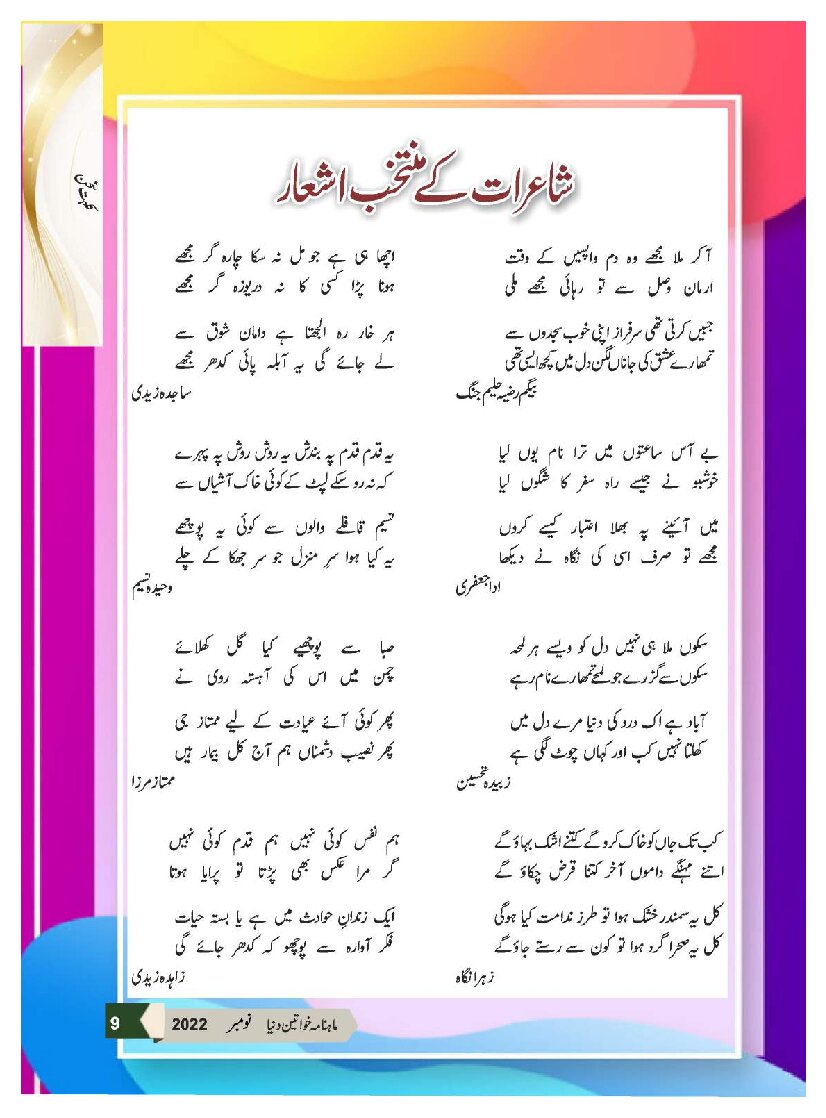 نکہت سخن
شاعرات کے منتخب اشعار
آکر ملا مجھے وہ دم واپسیں کے وقت
ارمان وصل سے تو رہائی مجھے ملی
جبیں کرتی تھی سرفراز اپنی خوب سجدوں سے
تمھارے عشق کی جاناں لگن دل میں کچھ ایسی تھی
بیگم رضیہ حلیم جنگ
بے آس ساعتوں میں ترا نام یوں لیا
خوشبو نے جیسے راہ سفر کا شگوں لیا
میں آئینے پہ بھلا اعتبار کیسے کروں
مجھے تو صرف اسی کی نگاہ نے دیکھا
ادا جعفری
سکوں ملا ہی نہیں دل کو ویسے ہر لمحہ
سکوں سے گزرے جو لمحے تمھارے نام رہے
آباد ہے اک درد کی دنیا مرے دل میں
کھلتا نہیں کب اور کہاں چوٹ لگی ہے
زبیدہ تحسین
کب تک جاں کو خاک کرو گے کتنے اشک بہاؤ گے
اتنے مہنگے داموں آخر کتنا قرض چکاؤ گے
کل یہ سمندر خشک ہوا تو طرز ندامت کیا ہوگی
کل یہ صحرا گرد ہوا تو کون سے رستے جاؤ گے
زہرا نگاہ
اچھا ہی ہے جو مل نہ سکا چارہ گر مجھے
ہونا پڑا کسی کا نہ دریوزہ گر مجھے
ہر خار رہ الجھتا ہے دامان شوق سے
لے جائے گی یہ آبلہ پائی کدھر مجھے
ساجدہ زیدی
یہ قدم قدم پہ بندش یہ روش روش پہ پہرے
کہ نہ رو سکے لپٹ کے کوئی خاک آشیاں سے
نسیم قافلے والوں سے کوئی یہ پوچھے
یہ کیا ہوا سرِ منزل جو سر جھکا کے چلے
وحیدہ نسیم
صبا سے پوچھیے کیا گل کھلائے
چمن میں اس کی آہستہ روی نے
پھر کوئی آئے عیادت کے لیے ممتاز جی
پھر نصیب دشمناں ہم آج کل بیمار ہیں
ممتاز مرزا
ہم نفس کوئی نہیں ہم قدم کوئی نہیں
گر مرا عکس بھی پڑتا تو پرایا ہوتا
ایک زندانِ حوادث میں ہے پا بستہ حیات
فکر آوارہ سے پوچھو کہ کدھر جائے گی
زاہدہ زیدی
ماہنامہ خواتین دنیا نومبر 2022 9